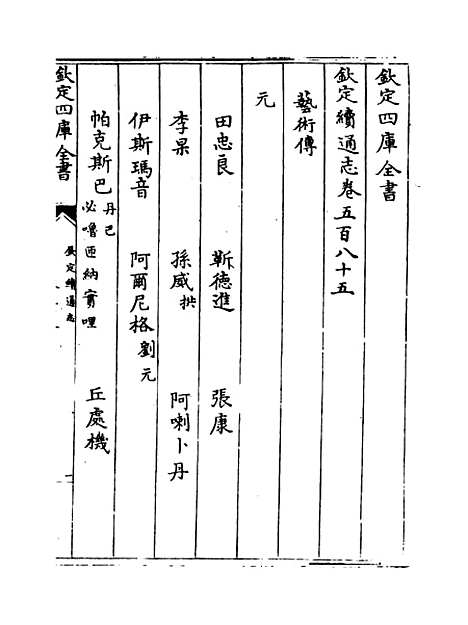 欽定四庫全書
欽定續通志卷五百八十五
藝術傳
元
田忠良 靳德進 張康
李杲 孫威 拱 阿喇卜丹
伊斯瑪音 阿爾尼格 劉元
帕克斯巴 丹巴 必嚕匝納實哩 丘處機
欽定四庫全書
欽定續通志
一